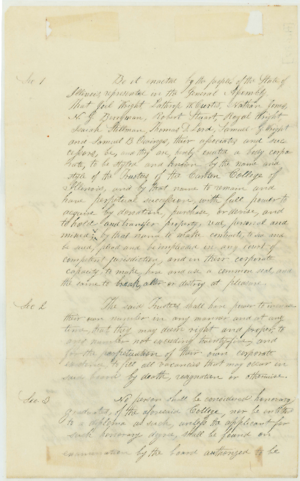 Sec. 1 Be it enacted by the people of the State of
Illinois represented in the General Assembly
That Joel Wright, Lathrop Nathan Jones
N. G. Robert Stuart, Royal Wright
Stillman, Thomas D. Lord, Samuel G. Wright
and Samuel B. their associates and suc
cessors, be, and they are hereby created a body corpo
rate, to be styled and known by the name and
style of the Trustees of the College of
Illinois, and by that name to remain and
have perpetual succession, with full power to
acquire by donation, purchase, or devise, and
to hold and transfer property, real, personal and
mixed, by that name to contract, to sue and be
sued, plead and be impleaded in any court of
competent jurisdiction, and in their corporate
capacity to make, have and use a common seal and
the same to break, alter or destroy at pleasure.
Sec. 2 The said Trustees shall have power to increase
their own number in any manner and at any
time that they may deem right and proper, to
any number not exceeding and
for the perpetuation of their own corporate
existence, to fill all vacancies that may occur in
such board by death, resignation or otherwise.
Sec. 3 No person shall be considered honorary
graduates, of the aforesaid College, nor be entitled
to a diploma as such, unless the applicant for
such honorary degree, shall be found on
examination by the board authorized to be